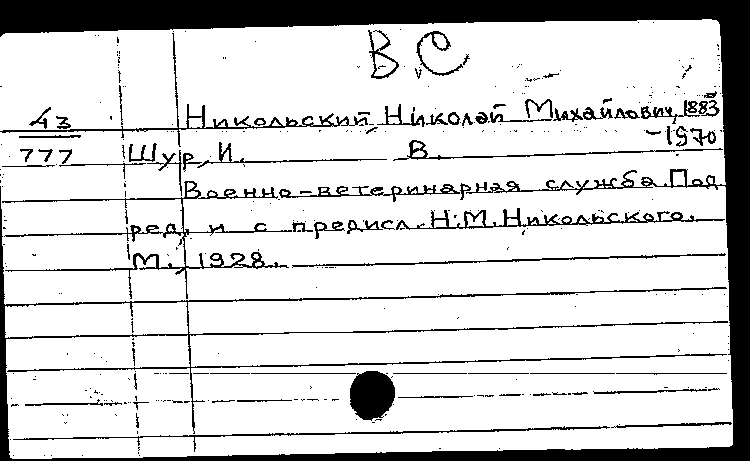 ВС
43 Никольский, Николай Михайлович, 1883
777 Шур, И. В. -1970
Военно-ветеринарная служба. Под
ред. и с предисл. Н.М. Никольского.
М., 1928.